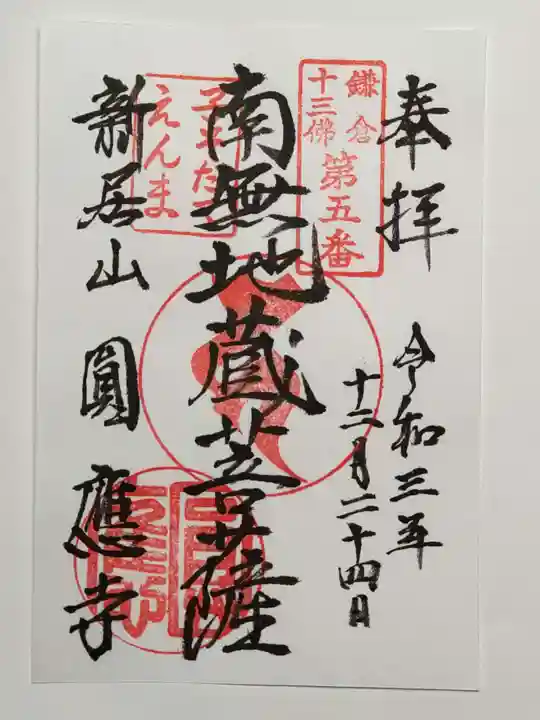 奉拝
令和三年
十二月二十四日
鎌倉
十三佛
第五番
南無地蔵菩薩
えんま
新居山 圓應寺